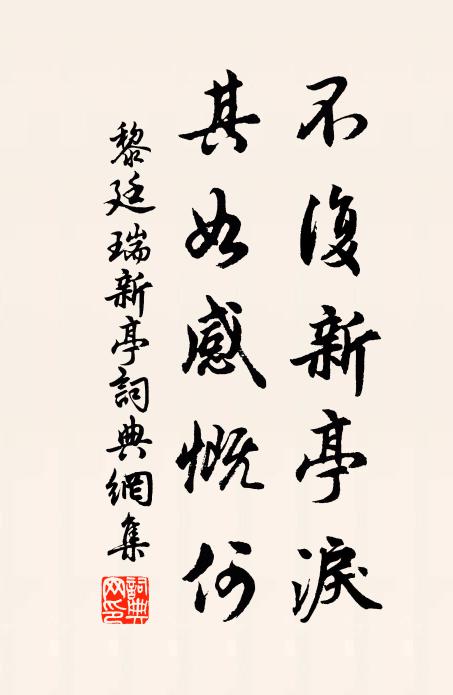 不復新亭淚
其如感慨何
黎廷瑞新亭詞典網集
詞典網印